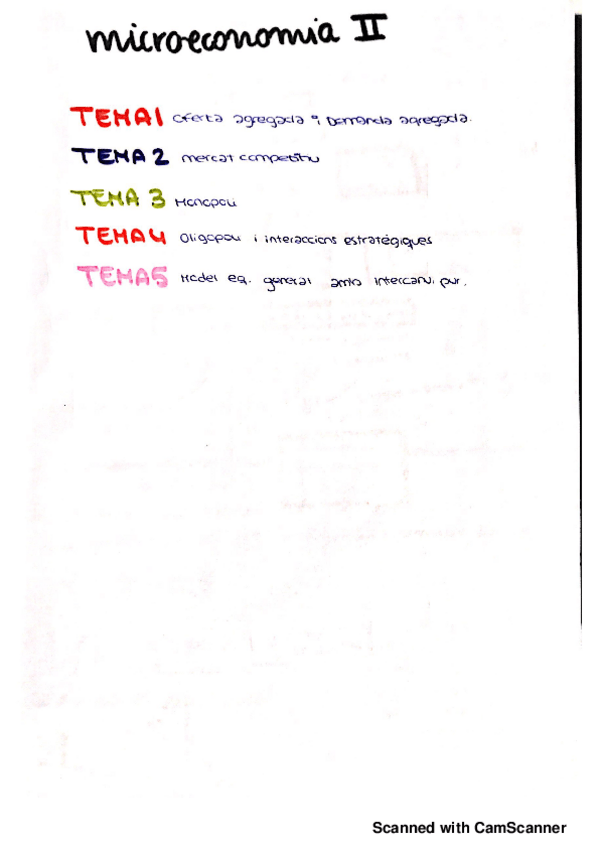 microeconomia II
TEMA1 Oferta agregada i Demanda agregada.
TEMA 2 mercat competitiu
TEMA 3 Monopoli
TEMA4 Oligopoli i interaccions estratègiques
TEMA5 Model eq. general amb intercanvi pur.
Scanned with CamScanner